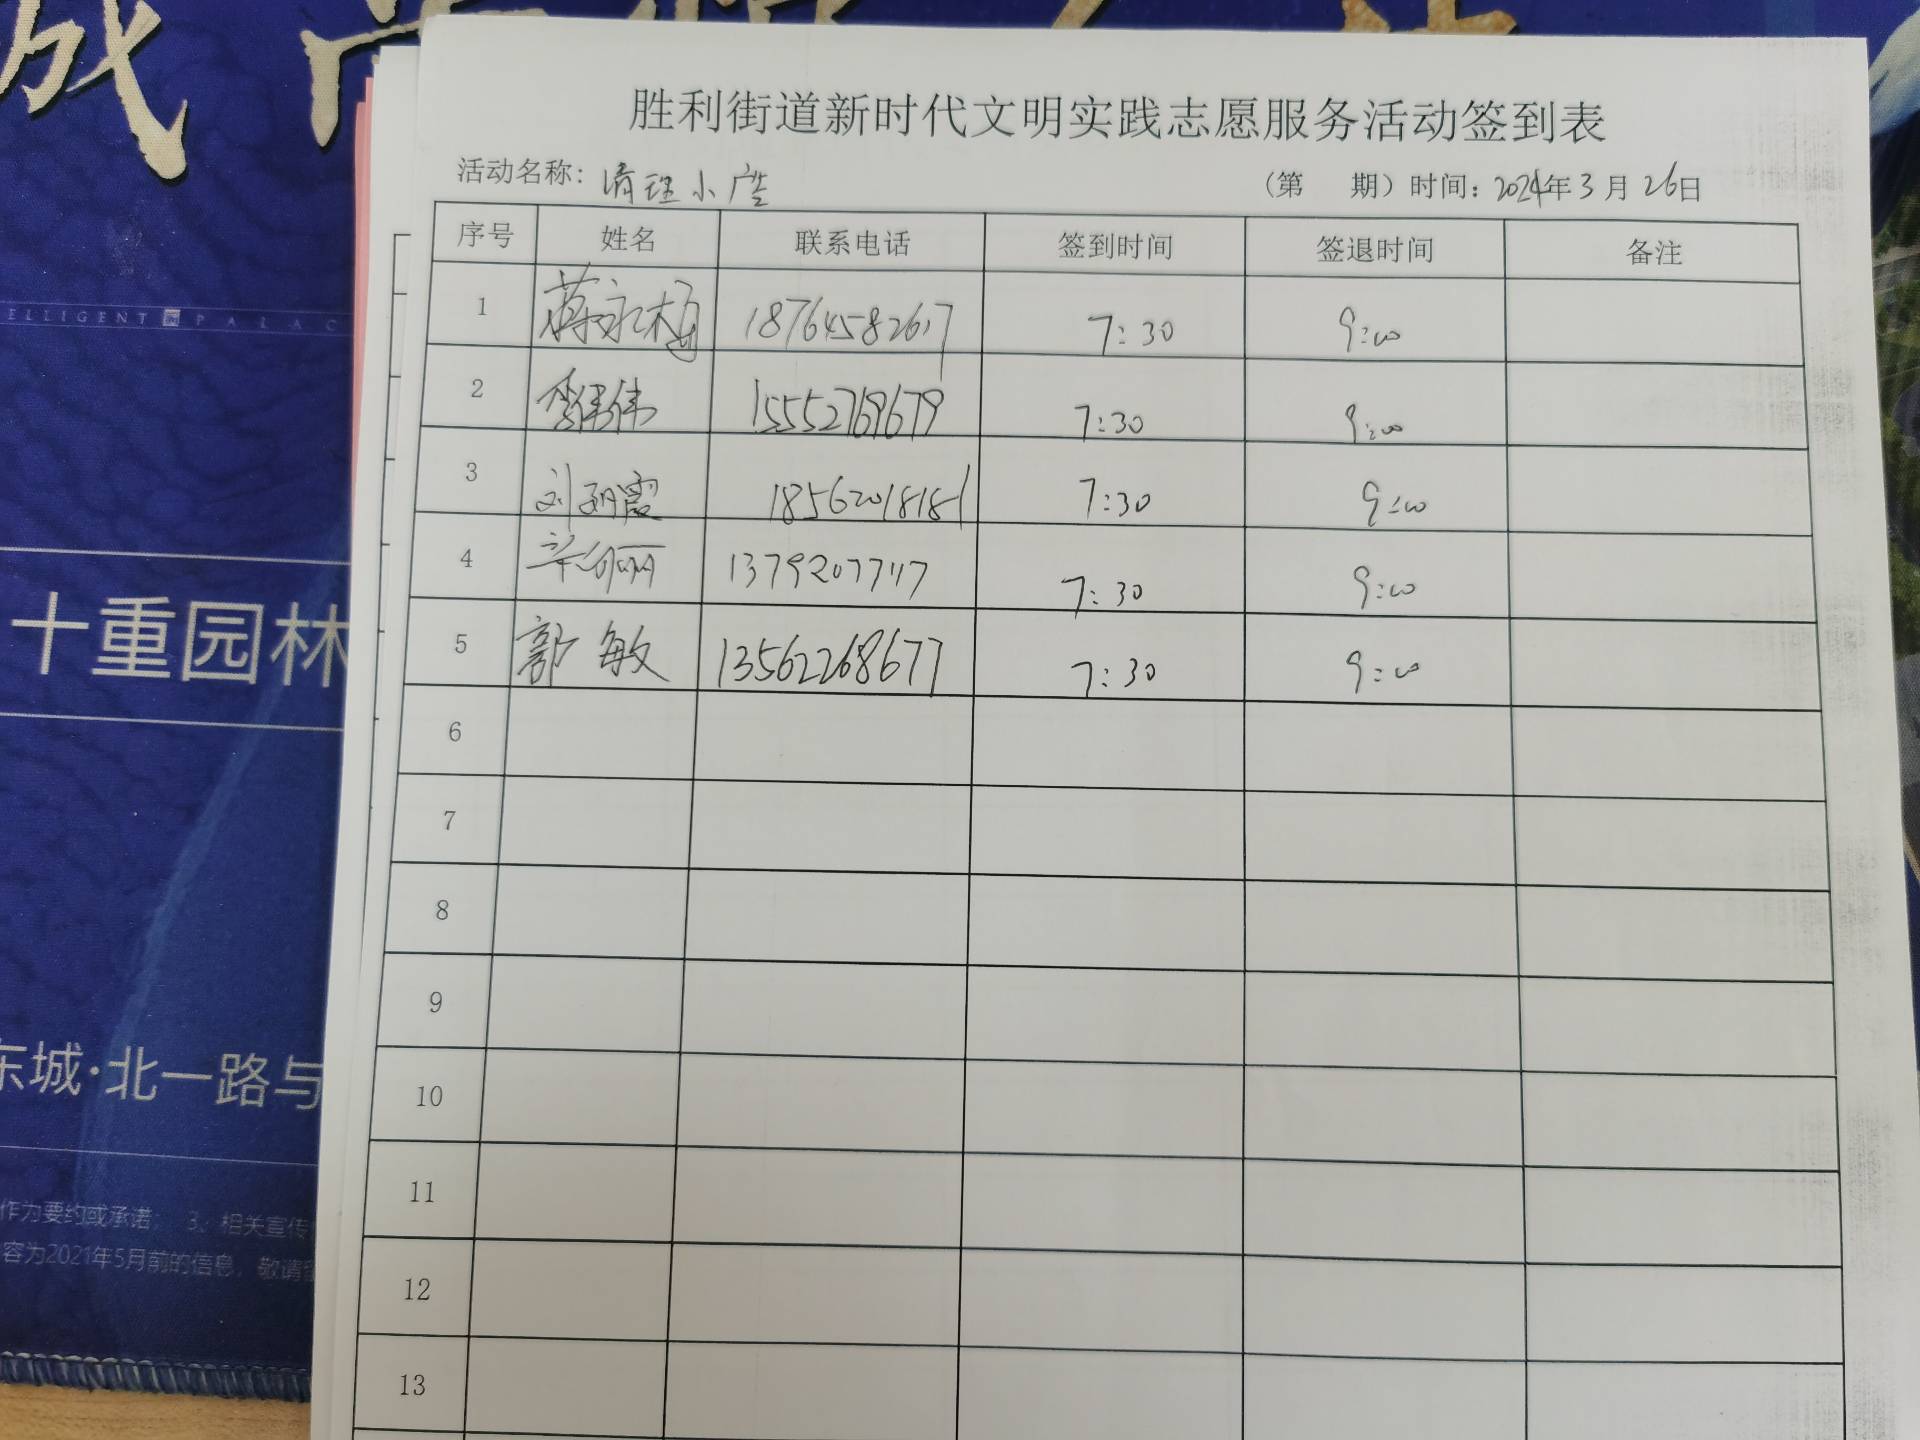 胜利街道新时代文明实践志愿服务活动签到表
活动名称：清理小广告 （第 期）时间：2024年3月26日
序号 姓名 联系电话 签到时间 签退时间 备注
1 蒋永梅 18764582617 7:30 9:00
2 李伟伟 15552769679 7:30 9:00
3 刘霞 18562018181 7:30 9:00
4 丽 13792077117 7:30 9:00
5 郭敏 13562268677 7:30 9:00
6
7
8
9
10
11
12
13
ELLIGENT PALAC
十重园林
东城·北一路与
作为要约或承诺； 3、相关宣传
容为2021年5月前的信息，敬请